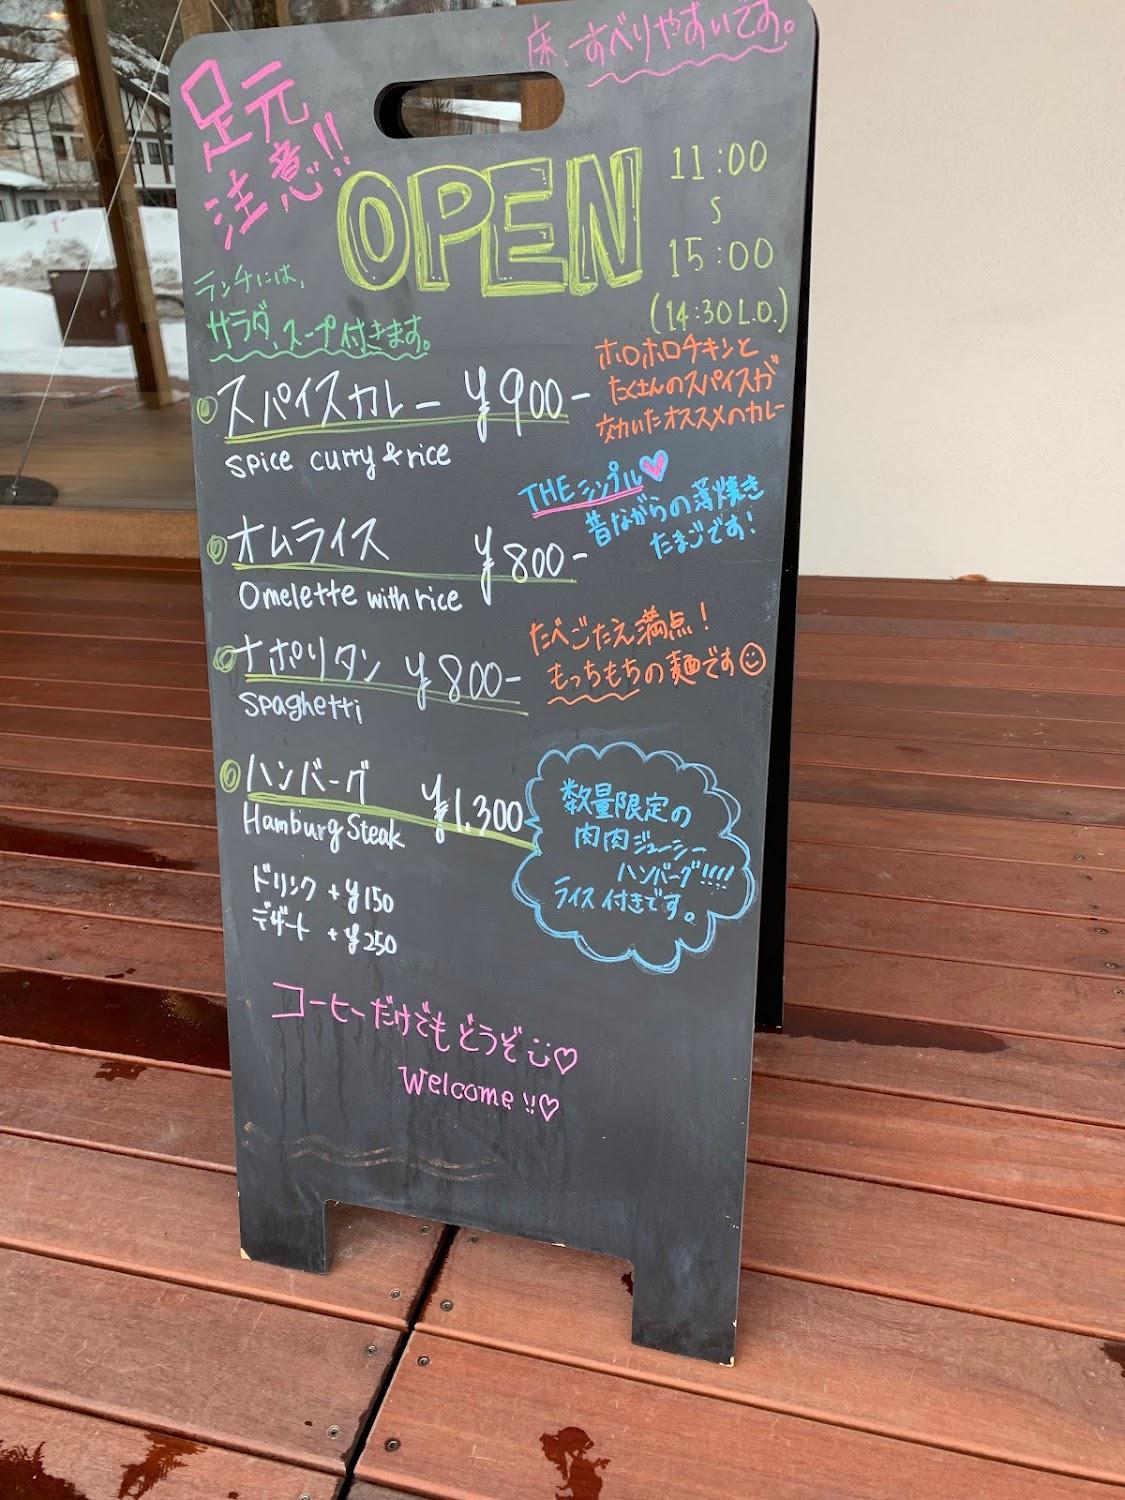 床、すべりやすいです。
足元
注意!!
OPEN
11:00
〜
15:00
(14:30 L.O.)
ランチには、
サラダ、スープ付きます。
スパイスカレー ¥900-
spice curry & rice
ホロホロチキンと
たくさんのスパイスが
効いたオススメのカレー
オムライス ¥800-
Omelette with rice
THE シンプル♥
昔ながらの薄焼き
たまごです!
ナポリタン ¥800-
spaghetti
たべごたえ満点!
もっちもちの麺です☺
ハンバーグ ¥1,300
Hamburg Steak
数量限定の
肉肉ジューシー
ハンバーグ!!!!
ライス付きです。
ドリンク +¥150
デザート +¥250
コーヒーだけでもどうぞ☺♡
Welcome!!♡